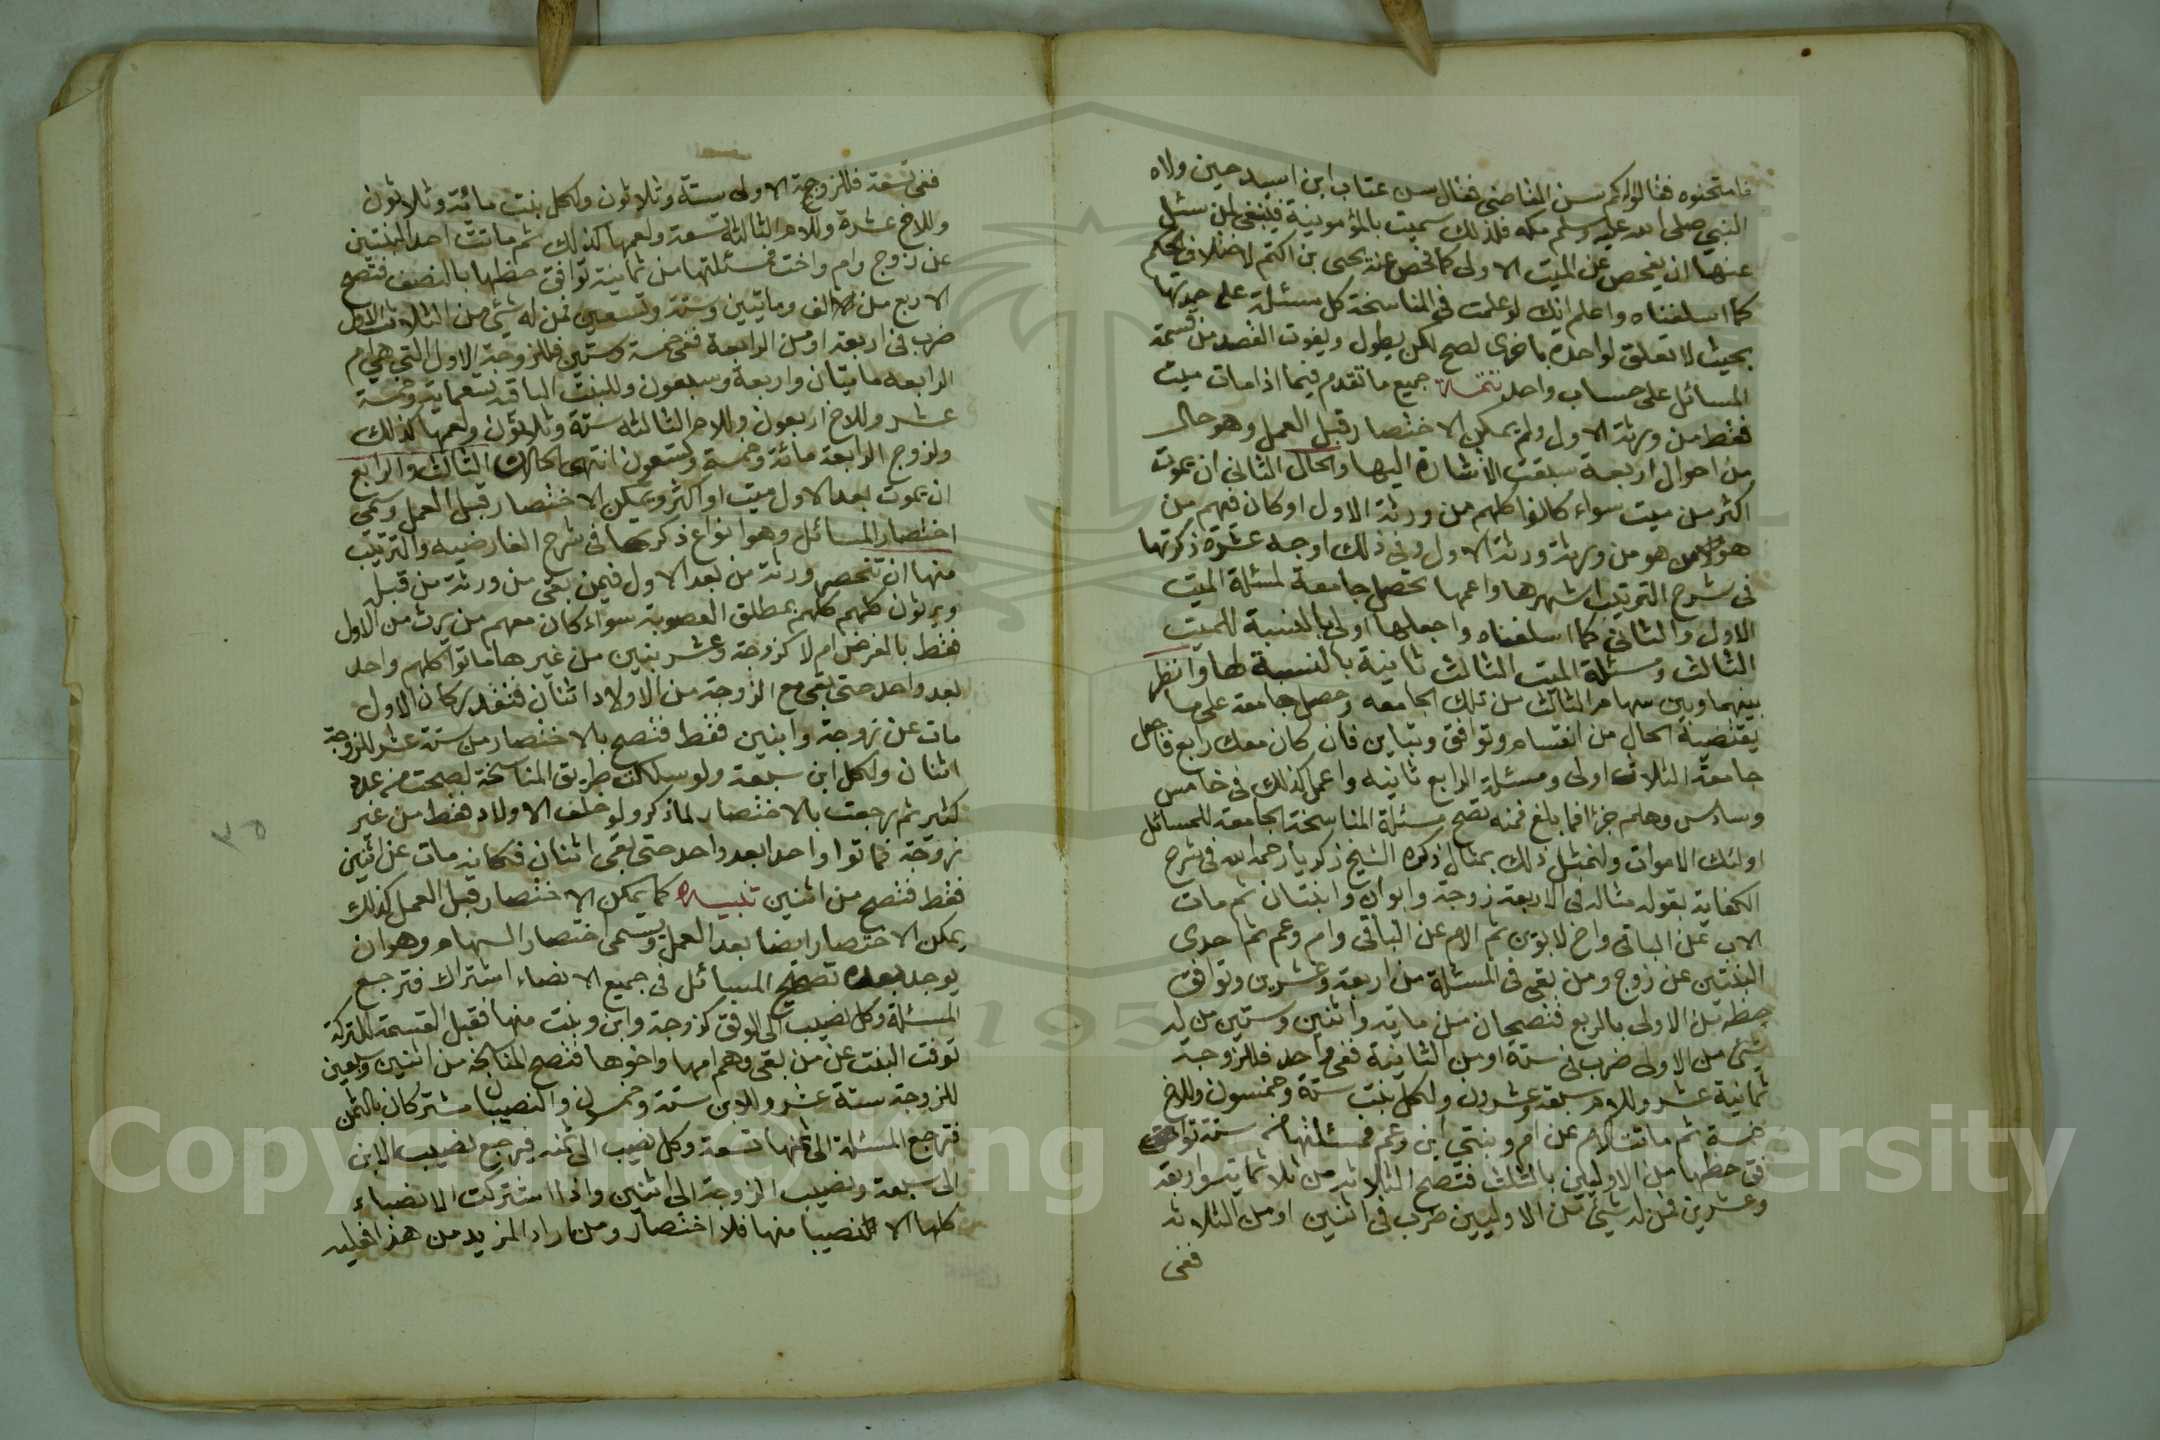 فامتحنوه فقالوا كم سن القاضى فقال سن عتاب ابن اسيد حين ولاه
النبي صلى الله عليه وسلم مكه فلذلك سميت بالمأمونية فينبغى لمن سئل
عنها ان يفحص عن الميت الاولى كما فحص عنه يحيى بن اكتم لاختلاف الحكم
كما اسلفناه واعلم انك لو علمت في المناسخة كل مسئلة على حدتها
بحيث لا تعلق لواحدة باخرى لصح لكن يطول ويفوت القصد من قسمة
المسائل على حساب واحد تتمة جميع ما تقدم فيما اذا مات ميت
فقط من ورثة الاول ولم يمكن الاختصار قبل العمل وهو حال
من احوال اربعة سبقت الاشارة اليها والحال الثانى ان يموت
اكثر من ميت سواء كانوا كلهم من ورثة الاول او كان فيهم من
هو من ورثة ورثة الاول وفى ذلك اوجه عشرة ذكرتها
فى شرح الترتيب اشهرها واعمها تحصل جامعة لمسئلة الميت
الاول والثانى كما اسلفناه واجعلها اولى بالنسبة للميت
الثالث ومسئلة الميت الثالث ثانية بالنسبة لها وانظر
بينهما وبين سهام الثالث من تلك الجامعه وحصل جامعة على ما
يقتضية الحال من انقسام وتوافق وتباين فان كان معك رابع فاجعل
جامعة الثلاث اولى ومسئلة الرابع ثانيه واعمل كذلك فى خامس
وسادس وهلم جرا فما بلغ فمنه تصح مسئلة المناسخة الجامعة للمسائل
اولئك الاموات ولنمثل ذلك بمثال ذكره الشيخ زكريا رحمه الله فى شرح
الكفاية بقوله مثاله فى الاربعة زوجة وابوان وابنتان ثم مات
الاب عن الباقى واخ لابوين ثم الام عن الباقى وام وعم ثم احدى
البنتين عن زوج ومن بقى فى المسئلة من اربعة وعشرين وتوافق
حظه من الاولى بالربع فتصحان من مايه واثنين وستين من له
شئ من الاولى ضرب فى ستة او من الثانية ففى واحد فللزوجة
ثمانية عشر وللام سبعة وعشرون ولكل بنت ستة وخمسون وللاخ
خمسة ثم ماتت الام عن ام وبنتي ابن وعم فمسئلتها من ستة توافق
فق حظها من الاوليين بالثلث فتصح الثلاثه من ثلاثمايه واربعه
وعشرين فمن له شئ من الاوليين ضرب فى اثنين او من الثلاثه
ففى
ففى تسعة فللزوجة الاولى ستة وثلاثون ولكل بنت مائة وثلاثون
وللاخ عشرة وللام الثالثه تسعة ولعمها كذلك ثم ماتت احد البنتين
عن زوج وام واخت فمسئلتها من ثمانية توافق حظها بالنصف فتصح
الاربع من الف ومايتين وستة وتسعين فمن له شئ من الثلاث الاول
ضرب فى اربعة او من الرابعة ففى خمسة وستين فللزوجة الاول التى هي ام
الرابعه مايتان واربعة وسبعون وللبنت الباقيه تسعماية وخمسة
عشر وللاخ اربعون وللام الثالثه ستة وثلاثون ولعمها كذلك
ولزوج الرابعة مائة وخمسة وتسعون انتهى الحال الثالث والرابع
ان يموت بعد الاول ميت او اكثر ويمكن الاختصار قبل العمل وسمى
اختصار المسائل وهو انواع ذكرتها فى شرح الفارضيه والترتيب
منها ان تنحصر ورثة من بعد الاول فيمن بقى من ورثة من قبله
ويرثون كلهم كلهم بمطلق العصوبة سواء كان معهم من يرث من الاول
فقط بالفرض ام لا كزوجة وعشر بنين من غيرها ماتوا كلهم واحد
بعد واحد حتى بقى مع الزوجة من الاولاد اثنان فنقدر كان الاول
مات عن زوجة وابنين فقط فتصح بالاختصار من ستة عشر للزوجة
اثنان ولكل ابن سبعة ولو سلكت طريق المناسخة لصحت من عدد
كثير ثم رجعت بالاختصار لما ذكر ولو خلف الاولاد فقط من غير
زوجة فماتوا واحدا بعد واحد حتى بقى اثنان فكانه مات عن اثنين
فقط فتصح من اثنين تنبيه كما يمكن الاختصار قبل العمل كذلك
يمكن الاختصار ايضا بعد العمل ويسمى اختصار السهام وهو ان
يوجد بعد تصحيح المسائل فى جميع الانصباء اشتراك فترجع
المسئلة وكل نصيب الى الوفق كزوجة وابن وبنت منها فقبل القسمة للتركة
توفت البنت عن من بقى وهم امها واخوها فتصح المناسخه من اثنين وسبعين
للزوجة ستة عشر وللابن ستة وخمسون والنصيبان مشتركان بالثمن
فترجع المسئلة الى ثمنها تسعة وكل نصيب الى ثمنه فيرجع نصيب الابن
الى سبعة ونصيب الزوجة الى اثنين واذا اشتركت الانصباء
كلها الا نصيبا منها فلا اختصار ومن اراد المزيد من هذا فعليه
٣٥
1957
Copyright © King Saud University